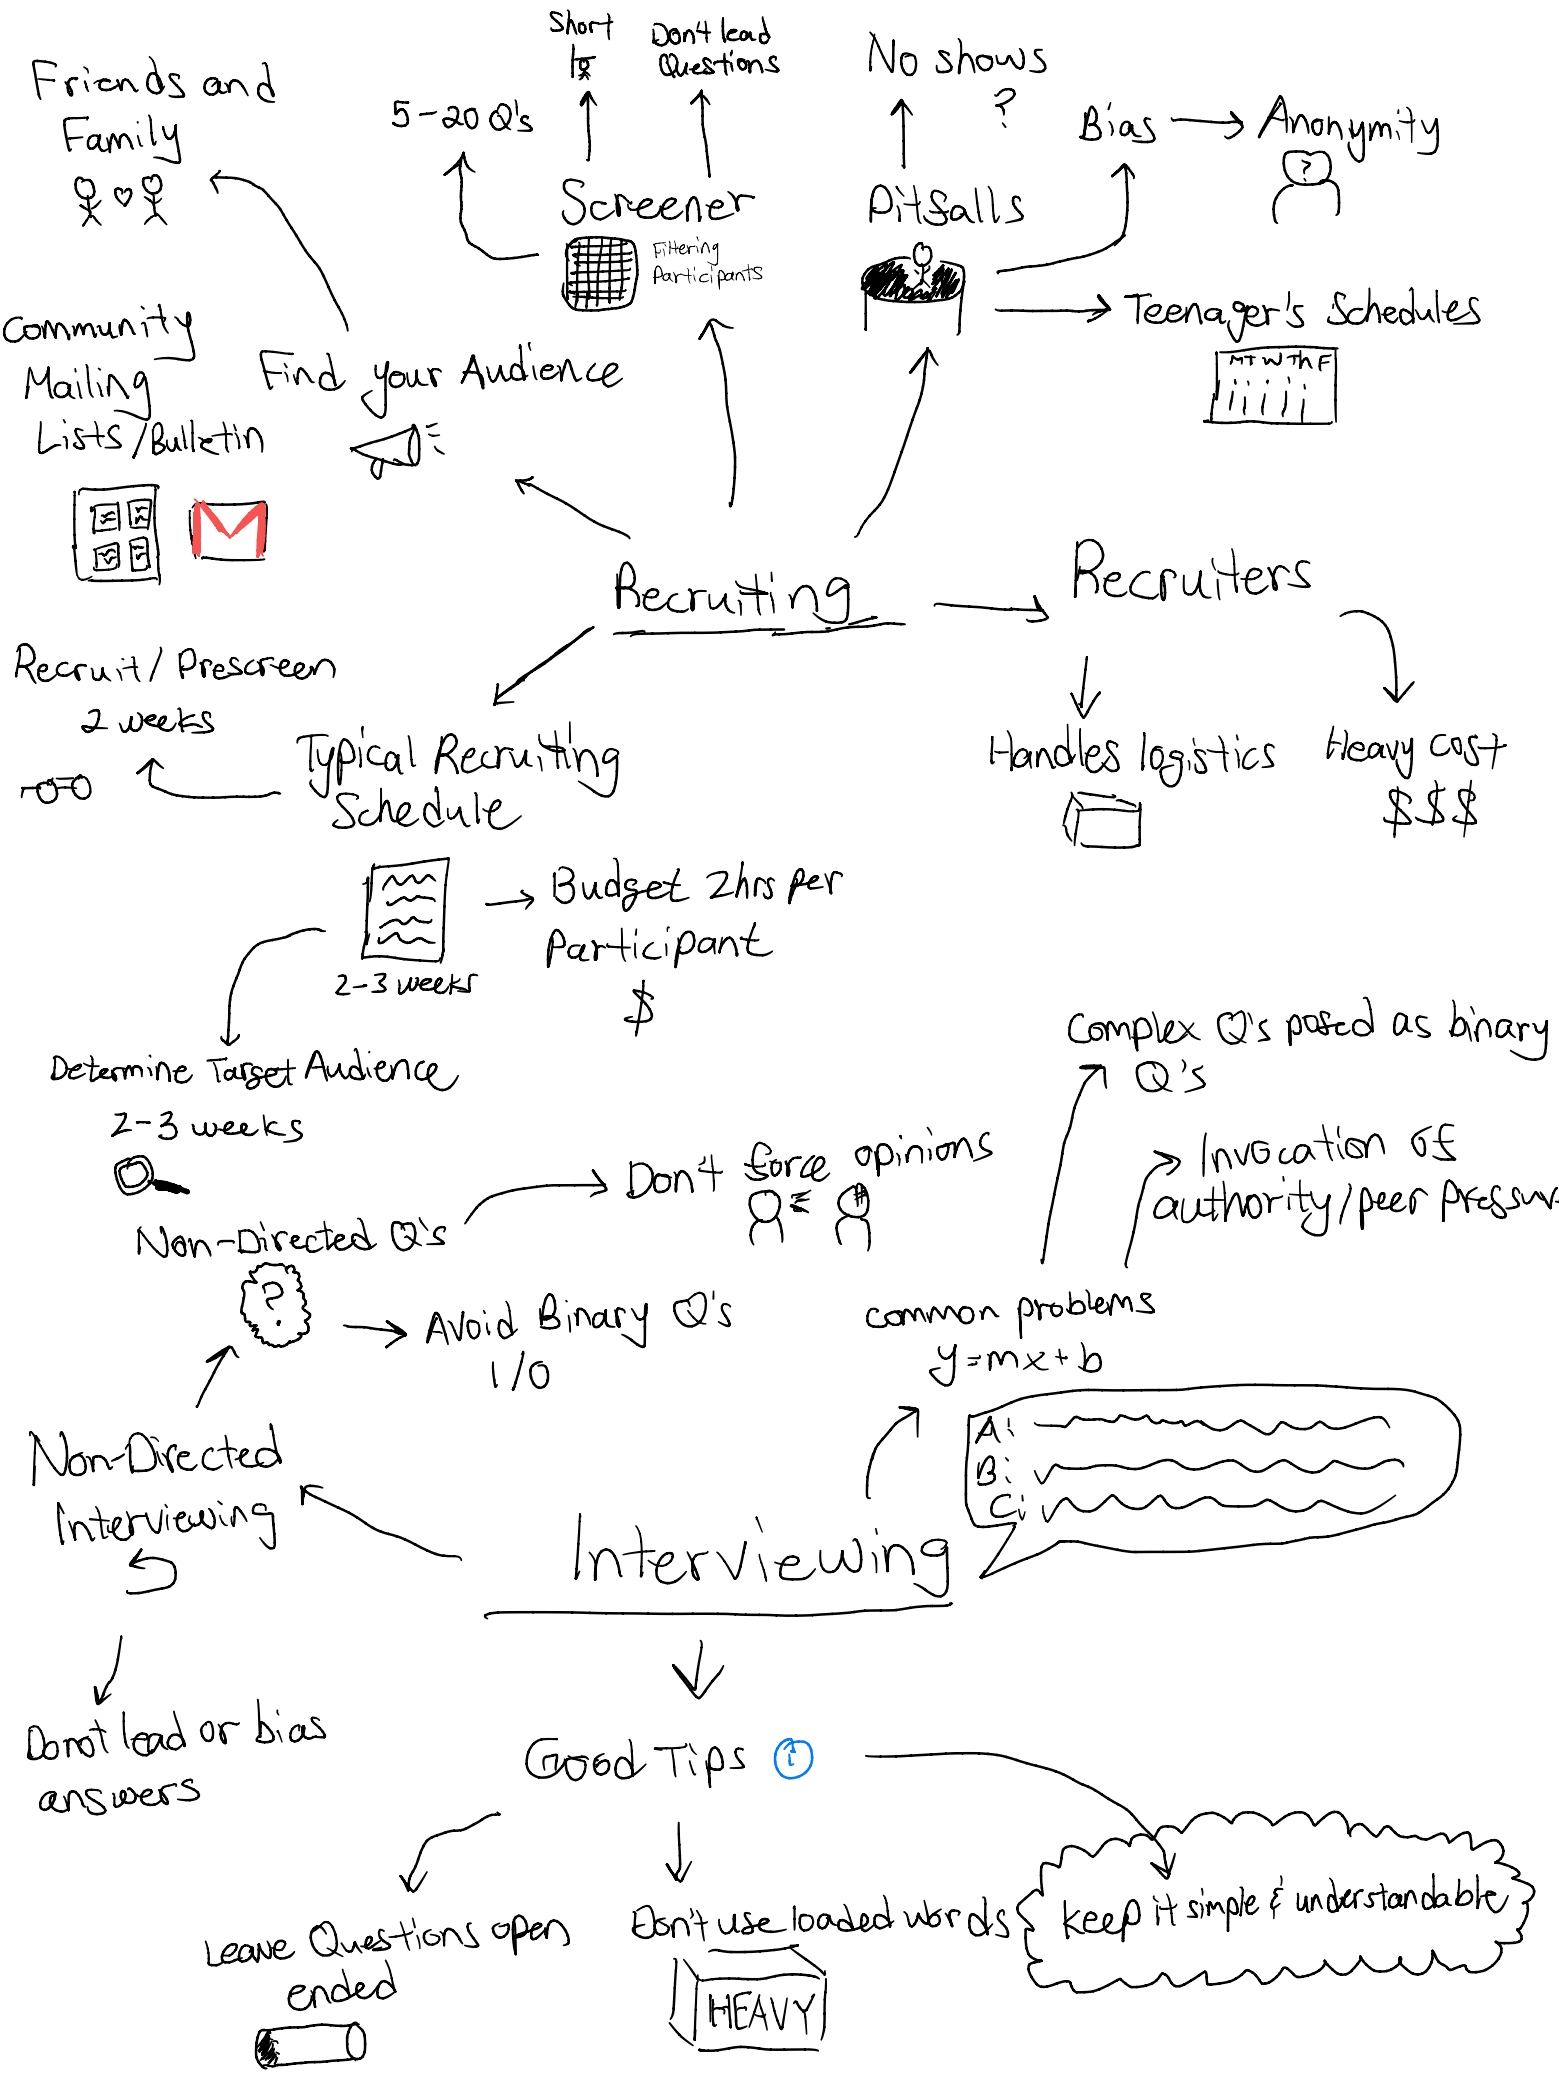 Short
Don't lead
Questions
5-20 Q's
No shows
?
Friends and
Family
Bias
Anonymity
?
Screener
Filtering
Participants
Pitfalls
Teenager's Schedules
M T W Th F
Community
Mailing
Lists/Bulletin
Find your Audience
M
Recruiting
Recruiters
Recruit/Prescreen
2 weeks
Typical Recruiting
Schedule
2-3 weeks
Handles logistics
Heavy cost
$$$
Budget 2hrs per
Participant
$
Determine Target Audience
2-3 weeks
Complex Q's posed as binary
Q's
Invocation of
authority/peer pressur
Don't force opinions
Non-Directed Q's
?
Avoid Binary Q's
1/0
common problems
y=mx+b
Non-Directed
Interviewing
A:
B:
C:
Interviewing
Do not lead or bias
answers
Good Tips i
Leave Questions open
ended
Don't use loaded words
HEAVY
keep it simple & understandable